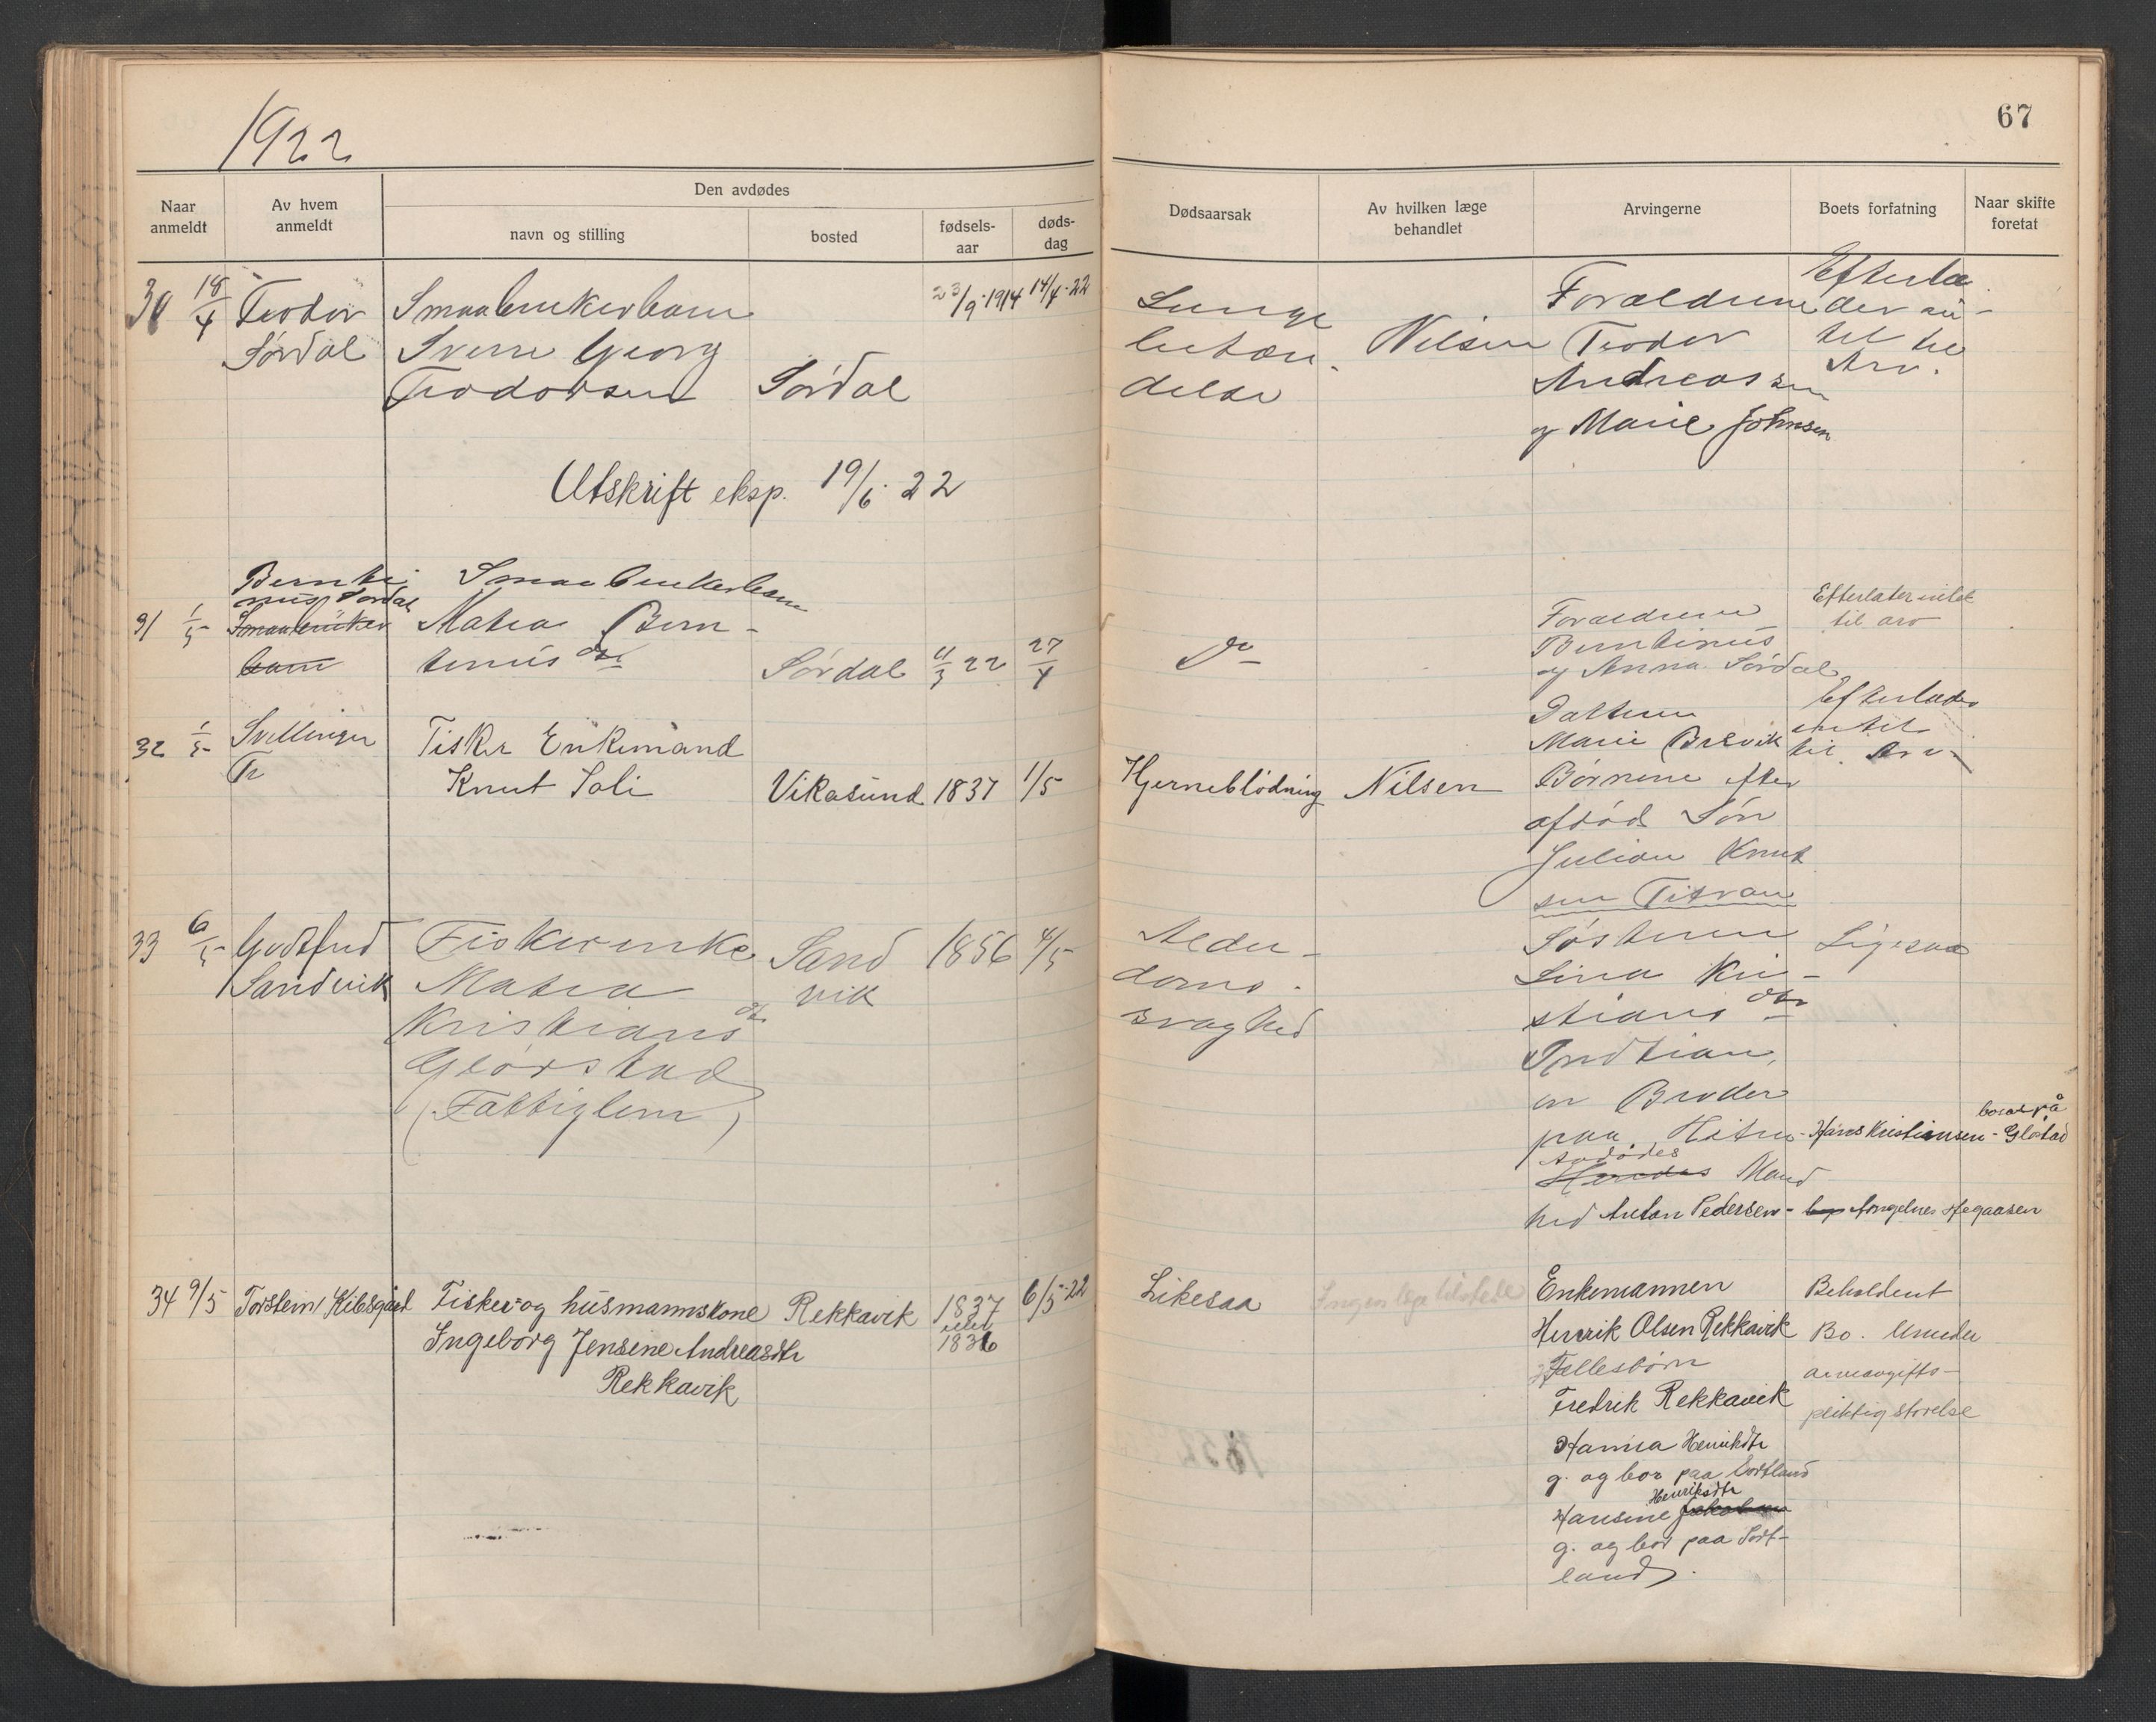 1922
67
Den avdødes
Naar anmeldt
Av hvem anmeldt
navn og stilling
bosted
fødsels-aar
døds-dag
Dødsaarsak
Av hvilken læge behandlet
Arvingerne
Boets forfatning
Naar skifte foretat
30 18/4 Teodor
Sørdal
Smaabrukerbarn
Sverre Georg
Teodorsen
Sørdal
23/9-1914
14/4-22
Lunge
betæn
delse
Nilsen
Forældrene
Teodor
Andreassen
og Marie Johnsen
Efterla
der in-
tet til
Arv.
Utskrift eksp. 19/6 22
Bernti
nus Sørdal
31 1/5 Smaabruker
barn
Smaabrukerbarn
Matea Bern-
tinusdtr
Sørdal
11/3 22
27/4
Do
Forældrene
Berntinus
og Anna Sørdal
Efterlater intet
til arv
32 1/5 Svellingen
Tr
Fisker Enkemand
Knut Soli
Vikasund
1837
1/5
Hjerneblødning
Nilsen
Datteren
Marie Brevik
Børnene efter
afdød Søn
Julian Knut
sen Titran
Efterlader
intet
til Arv
33 6/5 Godtfred
Sandvik
Fiskerenke
Matea
Kristiansdtr
Glørstad
(Fattiglem)
Sand
vik
1856
4/5
Alder-
doms-
svaghed
Søsteren
Lina Kri-
stiansdtr
en Broder
paa Hitra - Hans Kristiansen - Glørstad
bosat på
Avdødes
Mand
hed Anton Pedersen -
Ligesaa
34 9/5 Torstein Kibsgård
Fisker og husmannskone
Ingeborg Jensine Andreasdtr
Rekkavik
Rekkavik
1837
eller
1836
6/5-22
Likesaa
Ingen læge tilstede
Enkemannen
Henrik Olsen Rekkavik
Fellesbørn
Fredrik Rekkavik
Hanna Henriksdtr
g. og bor paa Sortland
Henriksdtr
Hansine
g. og bor paa Sort-
land.
Beholdent
Bo. Under
arveavgifts-
pliktig størelse